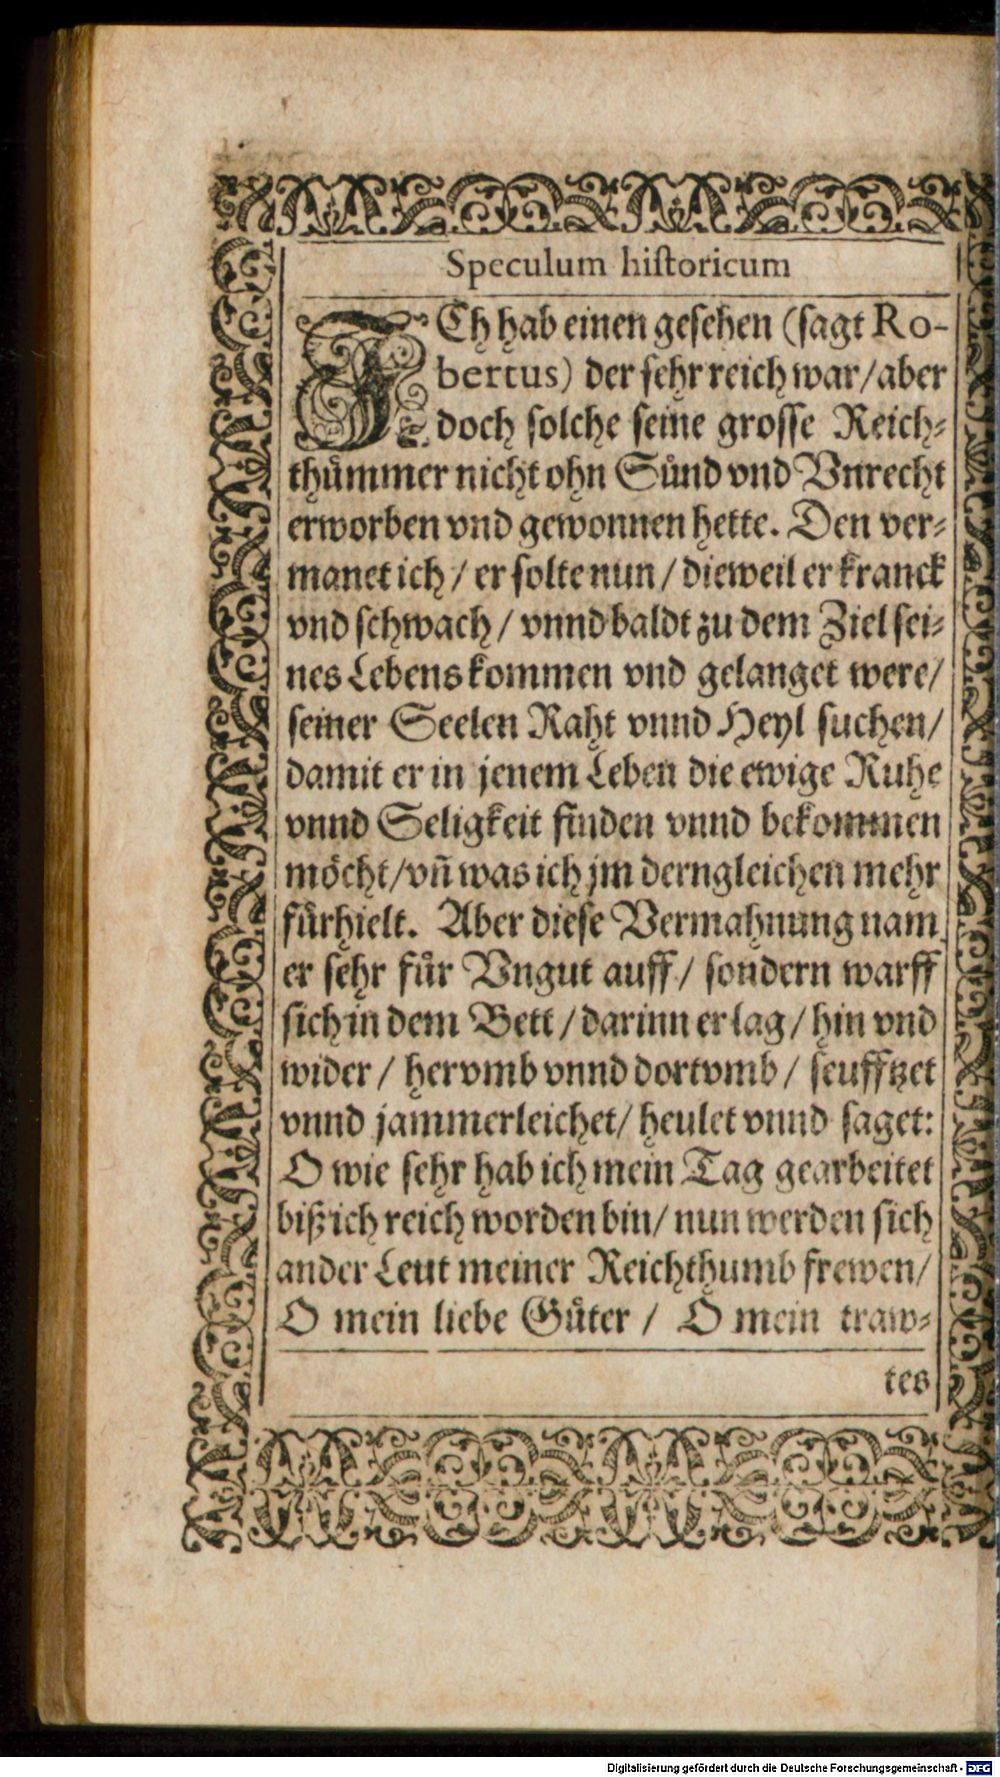 Speculum historicum
ICh hab einen gesehen (sagt Ro-
bertus) der sehr reich war/aber
doch solche seine grosse Reich-
thuͤmmer nicht ohn Suͤnd vnd Vnrecht
erworben vnd gewonnen hette. Den ver-
manet ich / er solte nun / dieweil er kranck
vnd schwach / vnnd baldt zu dem Ziel sei-
nes Lebens kommen vnd gelanget were/
seiner Seelen Raht vnnd Heyl suchen/
damit er in jenem Leben die ewige Ruhe
vnnd Seligkeit finden vnnd bekommen
moͤcht/vñ was ich jm derngleichen mehr
fuͤrhielt. Aber diese Vermahnung nam
er sehr fuͤr Vngut auff / sondern warff
sich in dem Bett / darinn er lag / hin vnd
wider / hervmb vnnd dortvmb / seufftzet
vnnd jammerleichet/ heulet vnnd saget:
O wie sehr hab ich mein Tag gearbeitet
biß ich reich worden bin/ nun werden sich
ander Leut meiner Reichthumb frewen/
O mein liebe Guͤter / O mein traw-
tes
Digitalisierung gefördert durch die Deutsche Forschungsgemeinschaft - DFG